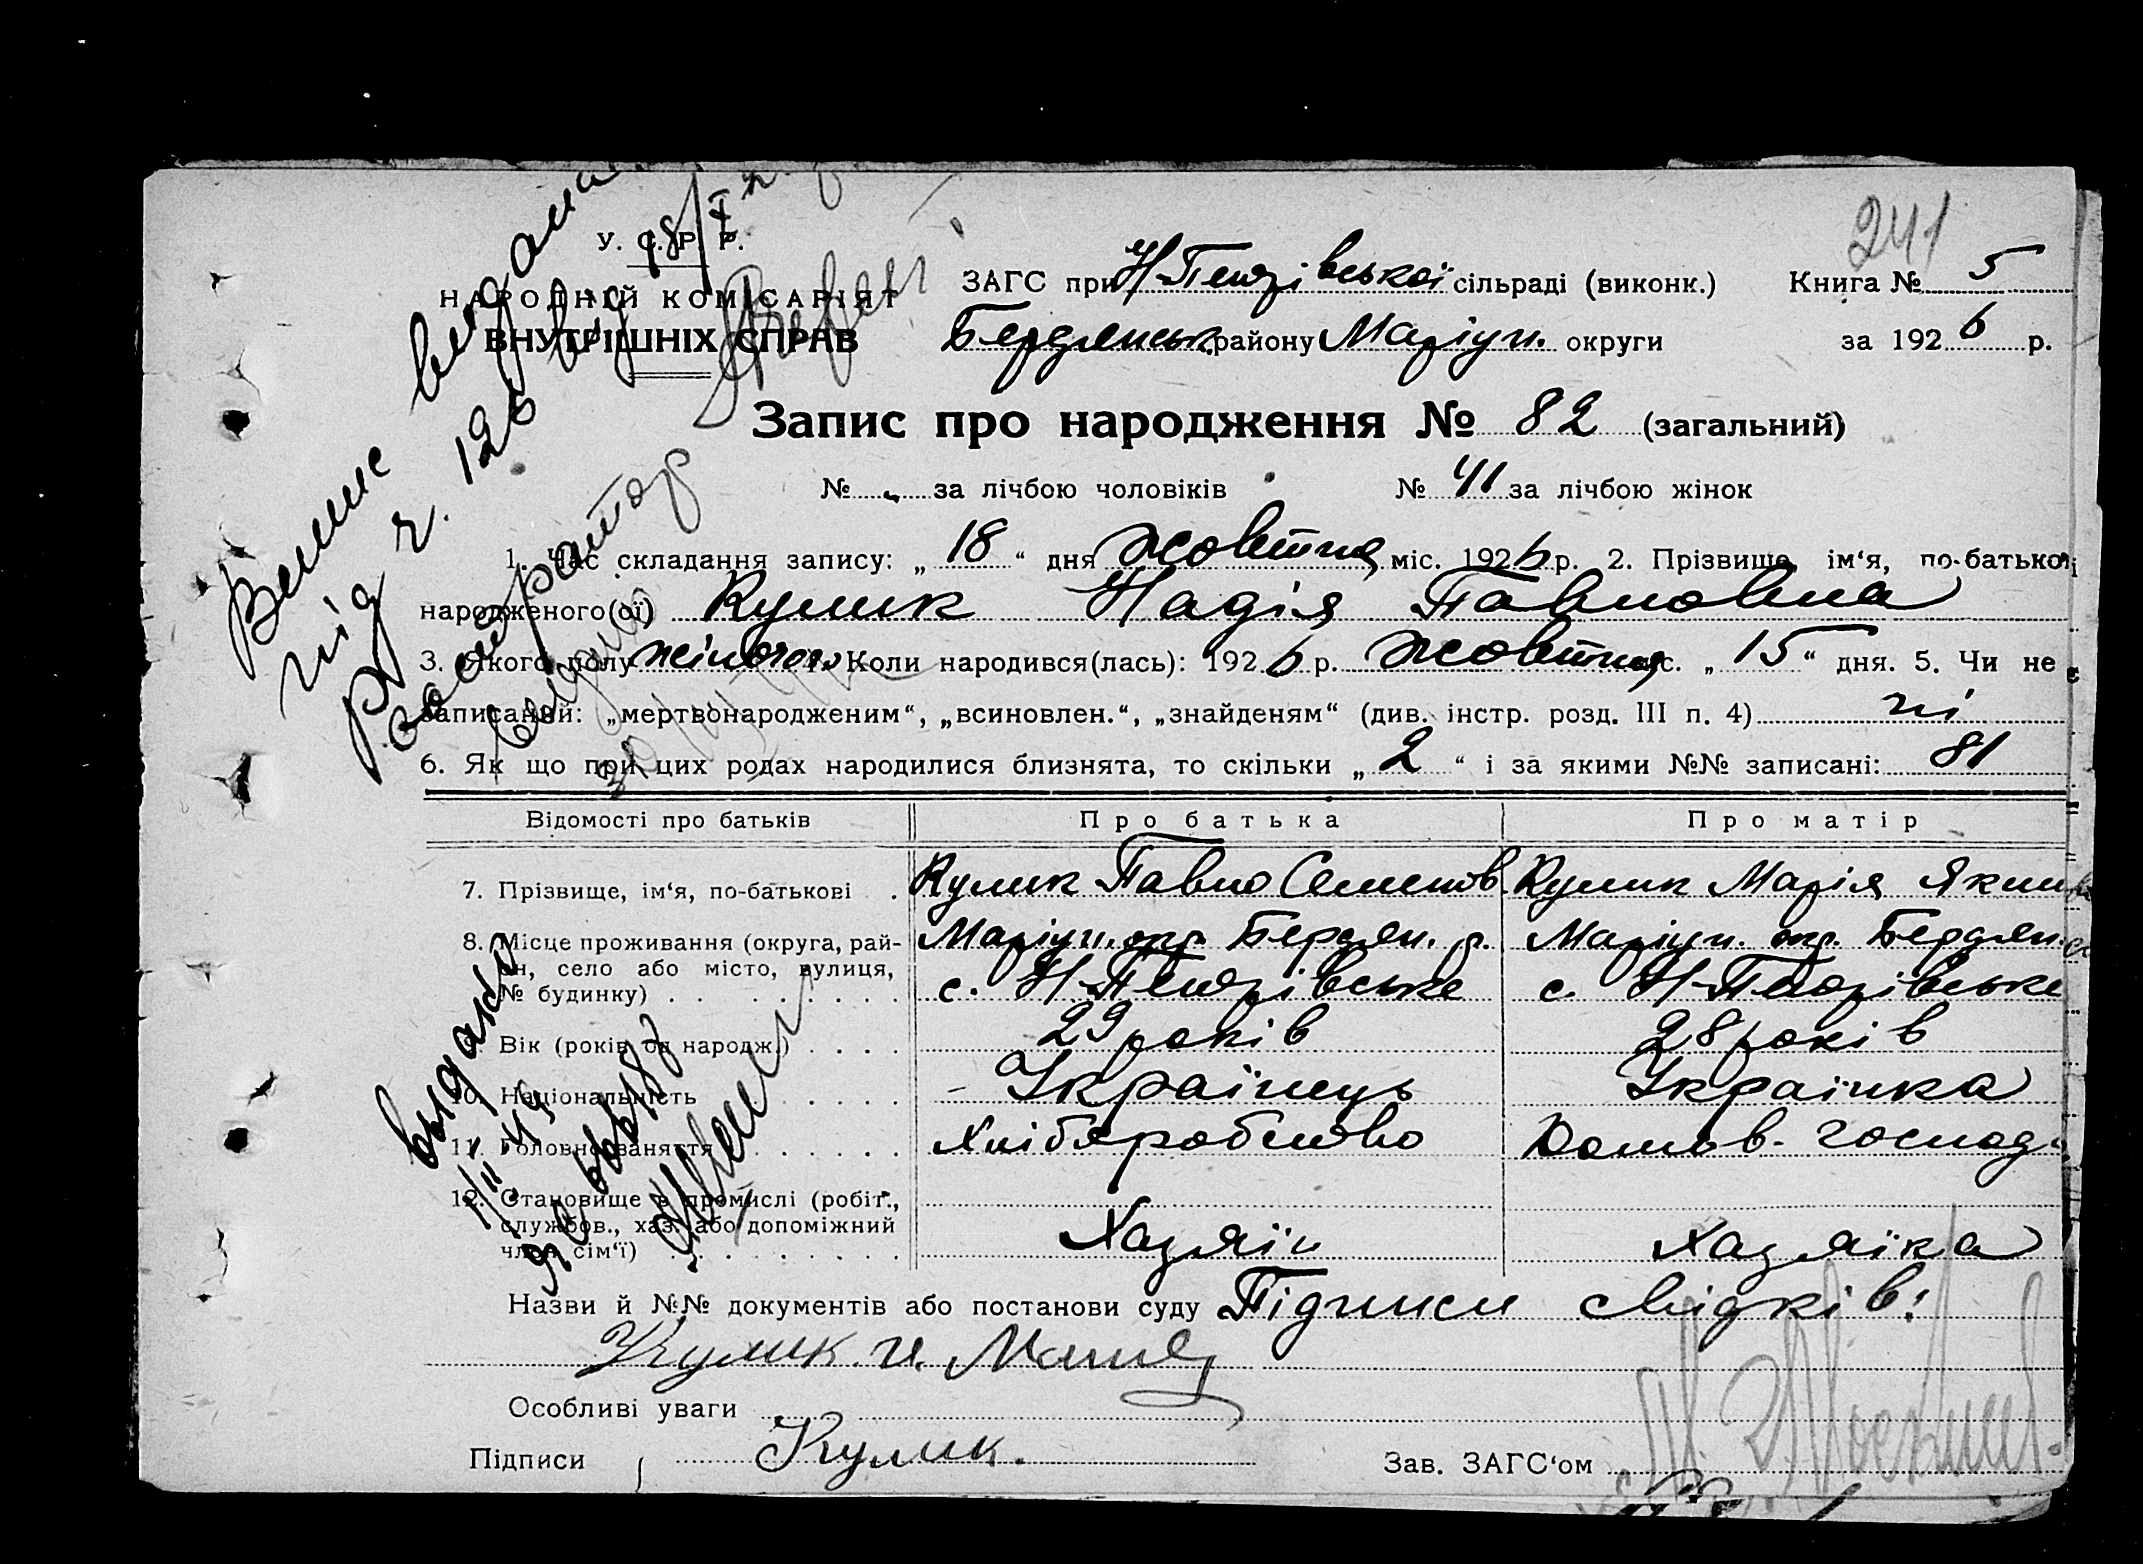 241
У. С. Р. Р.
НАРОДНІЙ КОМІСАРІЯТ
ВНУТРІШНІХ СПРАВ
ЗАГС при сільраді (виконк.) Книга № 5
Бердянськ. району Маріуп. округи за 1926 р.
Запис про народження № 82 (загальний)
№ „ за лічбою чоловіків № 41 за лічбою жінок
1. Час складання запису: „ 18 “ дня жовтня міс. 1926 р. 2. Прізвище, ім‘я, по-батькові
народженого(ої) Кулик Надія Павловна
3. Якого полу жіночого 4. Коли народився(лась): 1926 р. жовтня міс. „ 15 “ дня. 5. Чи не є
записаний: „мертвонародженим“, „всиновлен.“, „знайденям“ (див. інстр. розд. III п. 4) ні
6. Як що при цих родах народилися близнята, то скільки „ 2 “ і за якими №№ записані: 81
Відомості про батьків Про батька Про матір
7. Прізвище, ім‘я, по-батькові . Кулик Павло Семенов. Кулик Марія
8. Місце проживання (округа, рай- Маріуп. окр. Бердян. р. Маріуп. окр. Бердян.
он, село або місто, вулиця,
№ будинку) с. с.
9. Вік (років од народж.) 29 років 28 років
10. Національність Українець Українка
11. Головне заняття Хліборобство Домов. господ.
12. Становище в промислі (робіт.,
службов., хаз. або допоміжний
член сім‘ї) Хазяїн Хазяїка
Назви й №№ документів або постанови суду Підписи свідків:
Кулик
Особливі уваги
Підписи Кулик. Зав. ЗАГС‘ом
Випис видана
під ч. 126 від 18/X
Реєстратор
видано